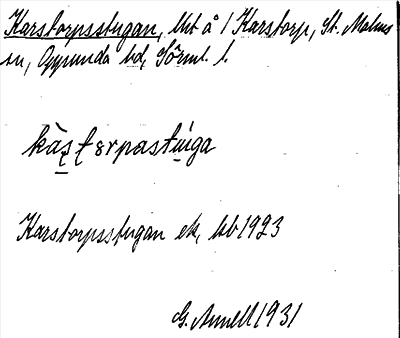 Karstorpsstugan, lht å 1 Karstorp, St. Malms
sn, Oppunda hd, Sörml. l.
kàṣṭorpastúga
Karstorpsstugan ek, kb 1923
G. Annell 1931